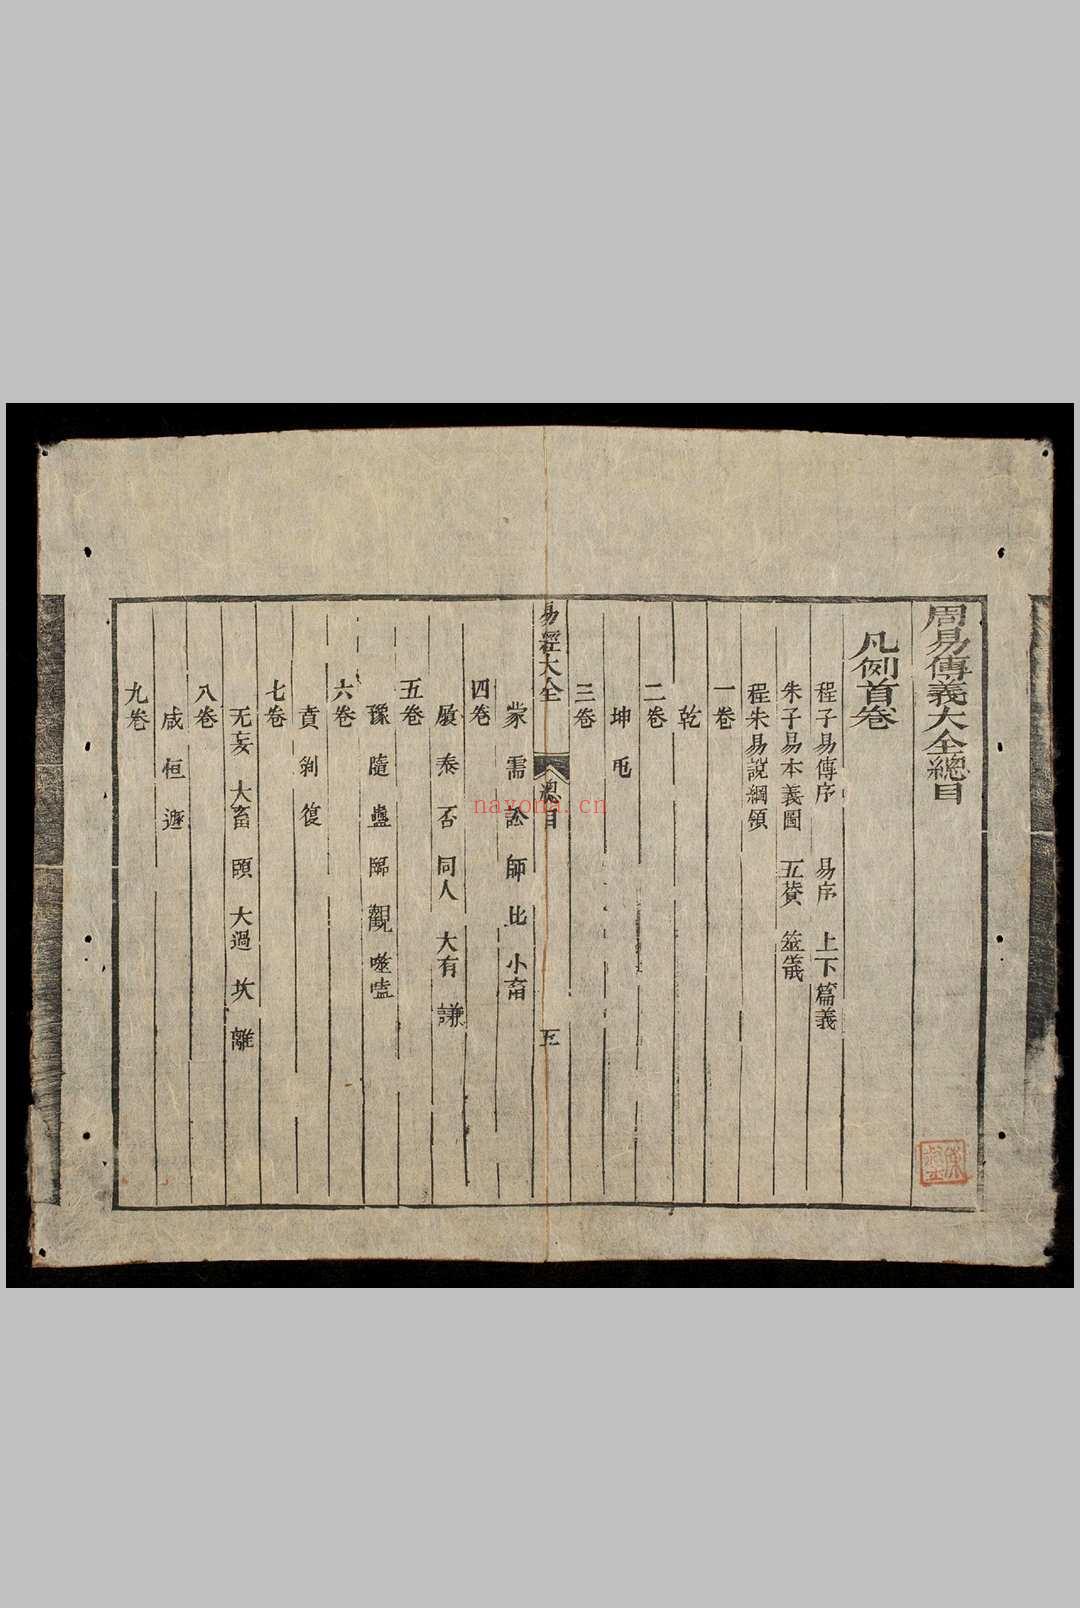 周易傳義大全總目
凡例首卷
程子易傳序 易序 上下篇義
朱子易本義圖 五賛 筮儀
程朱易說綱領
一卷
乾
二卷
坤 屯
三卷
易經大全 總目 五
蒙 需 訟 師 比 小畜
四卷
履 泰 否 同人 大有 謙
五卷
豫 隨 蠱 臨 觀 噬嗑
六卷
賁 剝 復
七卷
无妄 大畜 頤 大過 坎 離
八卷
咸 恒 遯
九卷
nayona.cn